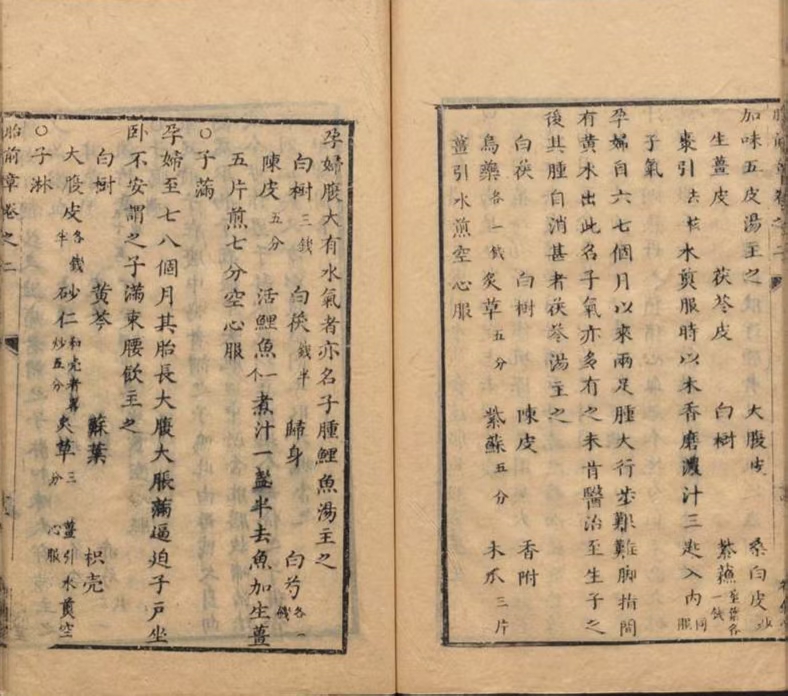 加味五皮湯主之
大腹皮 桑白皮炒
生薑皮 茯苓皮 白樹 紫蘓
棗引去核水煎服時以木香磨濃汁三匙入內同服
子氣
孕婦自六七個月以來兩足腫大行步艱難腳指間
有黃水出此名子氣亦多有之未肯醫治至生子之
後其腫自消甚者茯苓湯主之
白茯 白樹 陳皮 香附
烏藥各一錢 炙草五分 紫蘇五分 木瓜三片
薑引水煎空心服
孕婦腹大有水氣者亦名子腫鯉魚湯主之
白樹三錢 白茯錢半 歸身 白芍各一錢
陳皮五分 活鯉魚一个煮汁一盞半去魚加生薑
五片煎七分空心服
○子滿
孕婦至七八個月其胎長大腹大脹滿逼迫子戶坐
卧不安謂之子滿束腰飲主之
白樹 黃芩 蘇葉 枳壳
大腹皮各錢半 砂仁和壳 炒五分 炙草三分 薑引水煎空心服
○子淋
胎前章卷之二